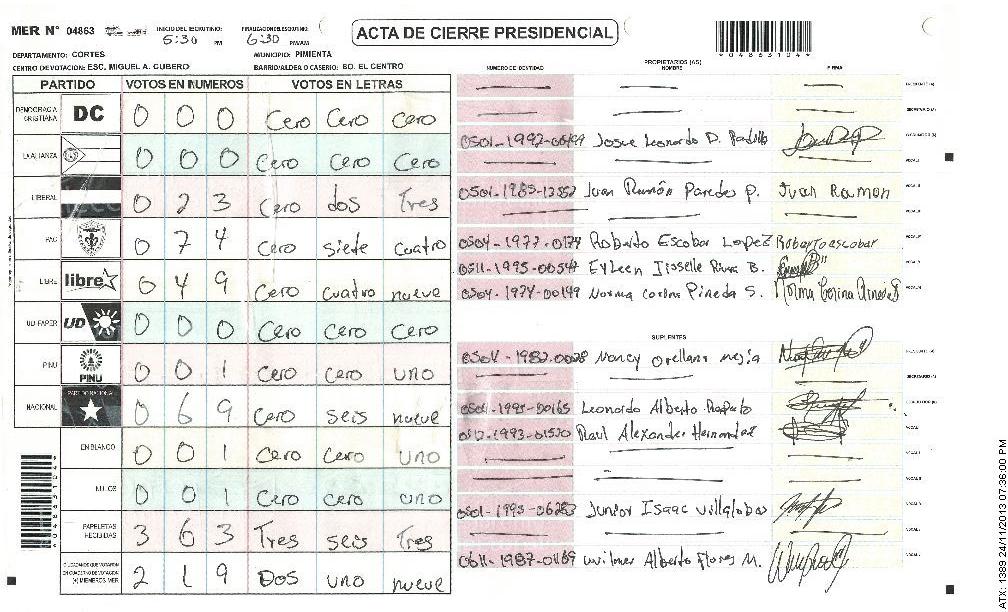 MER Nº 04863 INICIO DEL ESCRUTINIO: 5:30 PM FINALIZACION ESCRUTINIO: 6:30 PM/AM ACTA DE CIERRE PRESIDENCIAL *04863104*
DEPARTAMENTO: CORTES MUNICIPIO: PIMIENTA
CENTRO DE VOTACION: ESC. MIGUEL A. CUBERO BARRIO/ALDEA O CASERIO: BO. EL CENTRO
PARTIDO VOTOS EN NUMEROS VOTOS EN LETRAS
DEMOCRACIA CRISTIANA DC 0 0 0 Cero Cero cero
LA ALIANZA 0 0 0 Cero Cero Cero
LIBERAL 0 2 3 Cero dos Tres
PAC 0 7 4 Cero siete cuatro
LIBRE libre 0 4 9 Cero cuatro nueve
UD-FAPER UD 0 0 0 Cero Cero Cero
PINU PINU 0 0 1 Cero Cero uno
NACIONAL PARTIDO NACIONAL 0 6 9 Cero seis nueve
EN BLANCO 0 0 1 Cero Cero uno
NULOS 0 0 1 Cero cero uno
PAPELETAS RECIBIDAS 3 6 3 Tres seis Tres
CIUDADANOS QUE VOTARON EN CUADERNO DE VOTACION (+) MIEMBROS MER 2 1 9 Dos uno nueve
PROPIETARIOS (AS)
NUMERO DE IDENTIDAD NOMBRE FIRMA
Josue Leonardo D. Padilla
0501-1985-13552 Juan Ramón Paredes p. Juan Ramon
Roberto Escobar Lopez Roberto escobar
0511-1995-00547 Eyleen Jisselle B.
0504-1974-00149 Norma Pineda S. Norma
SUPLENTES
0504-1982-0028 Nancy orellana mejia
Leonardo Alberto
0512-1993-01530 Raul Alexander Hernandez
Junior Isaac villalobos
0611-1987-01169 wilmer Alberto Flores M.
ATX: 1389 24/11/2013 07:36:00 PM